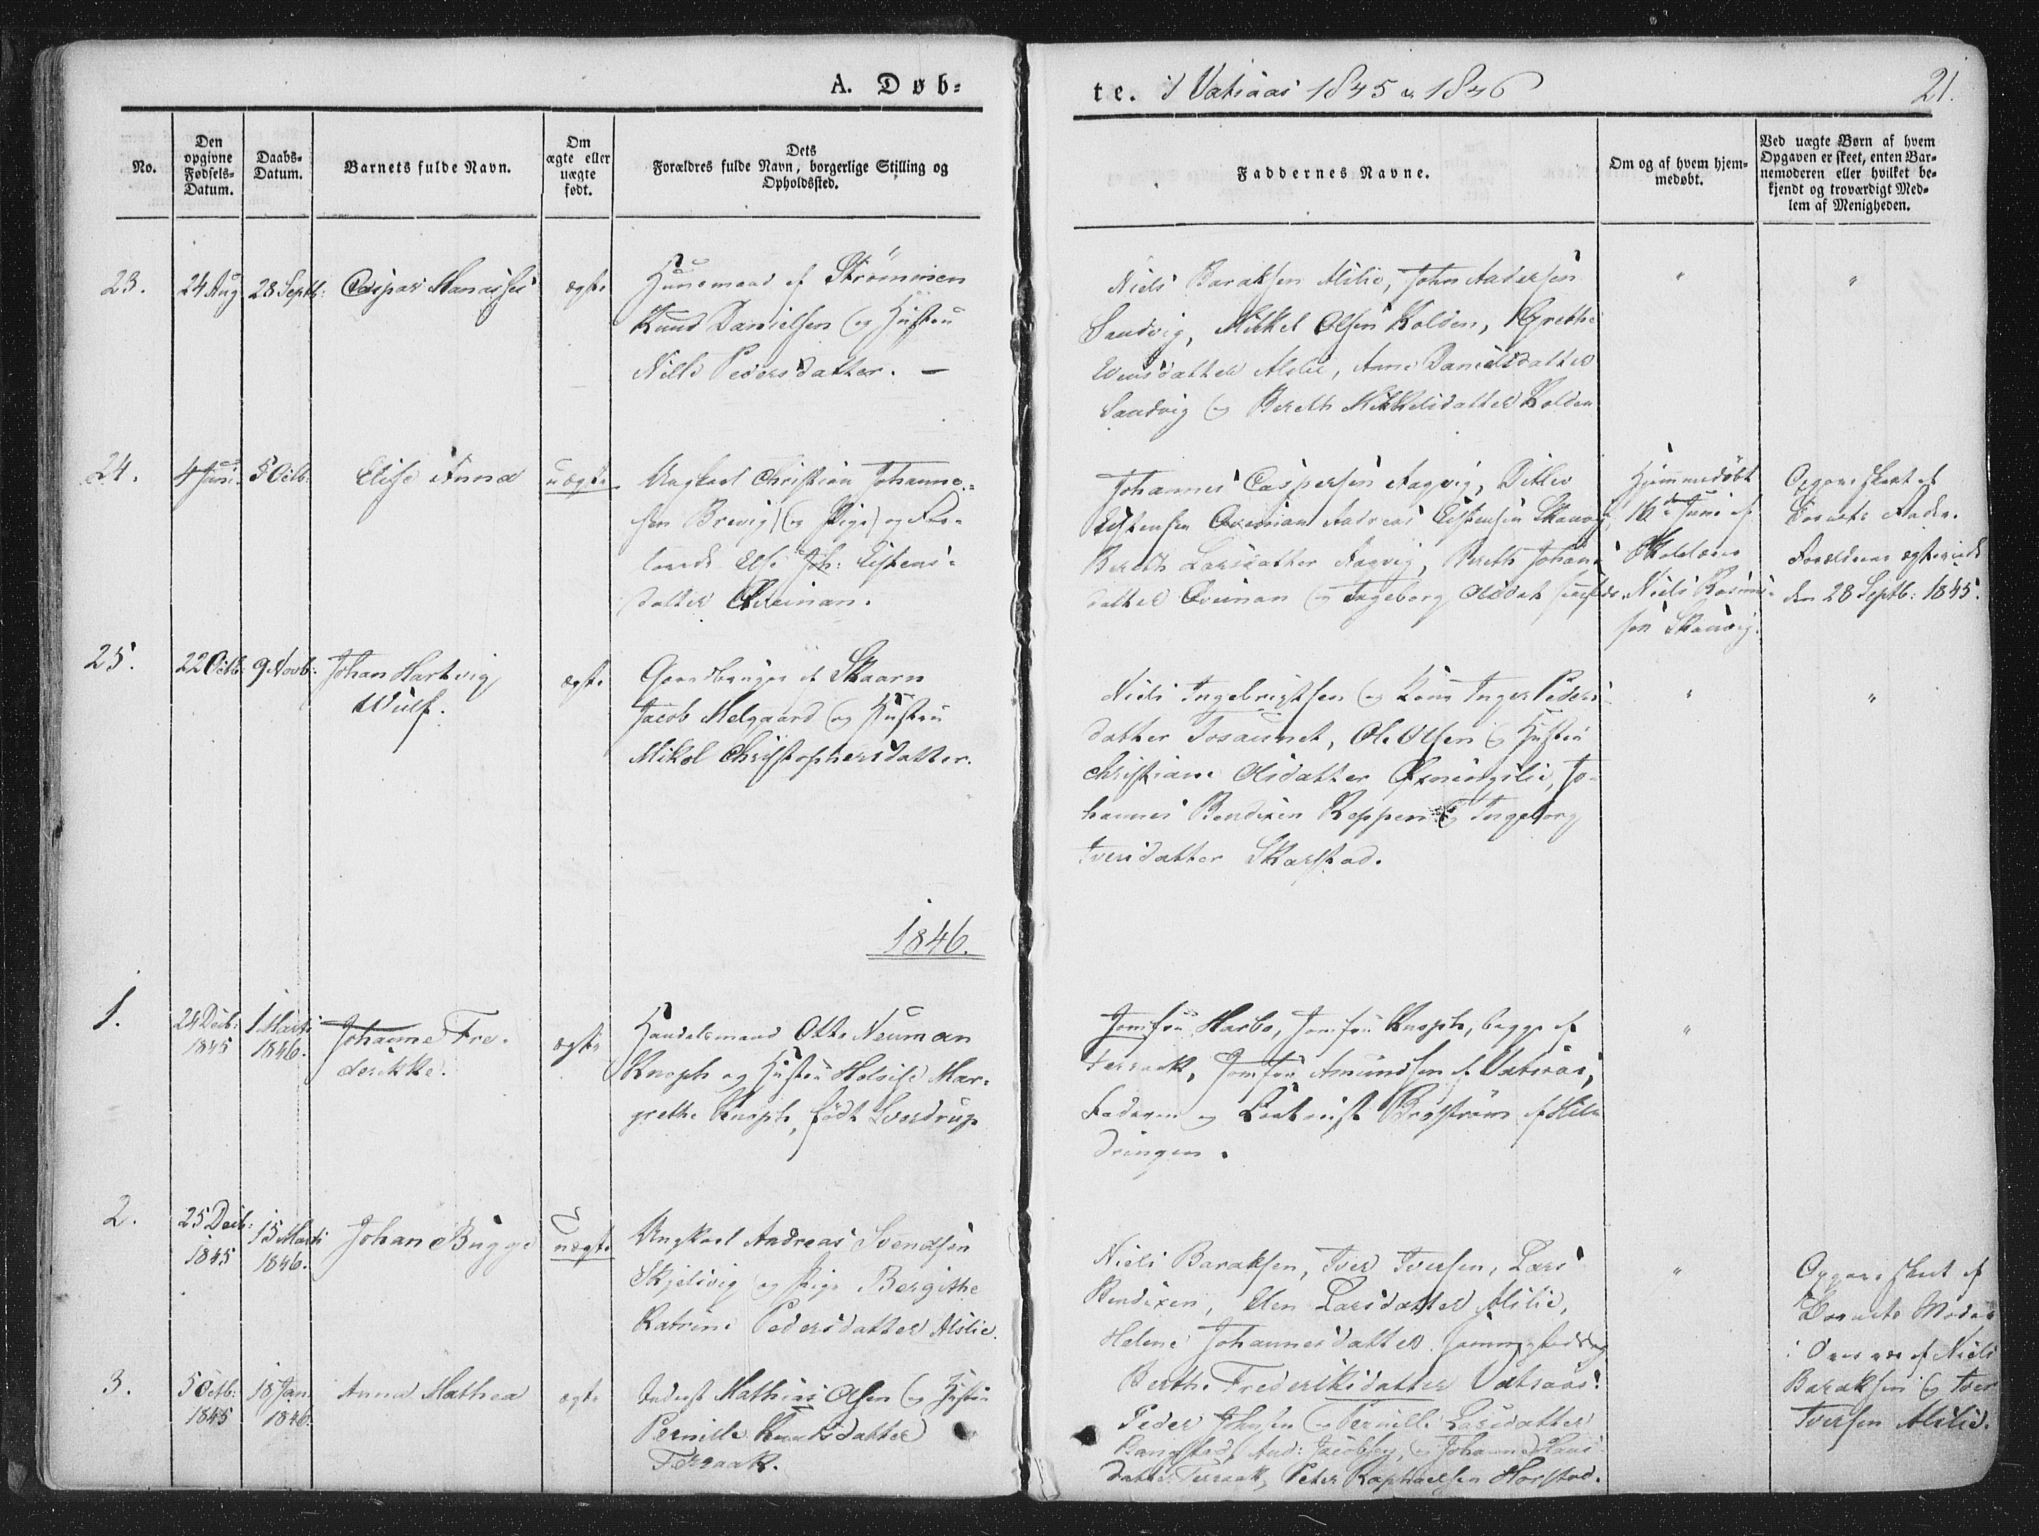 A. Døb-
te. i Vatsaas 1845 & 1846
21.
No.
Den opgivne Fødsels-Datum.
Daabs-Datum.
Barnets fulde Navn.
Om ægte eller uægte født.
Dets Forældres fulde Navn, borgerlige Stilling og Opholdssted.
Faddernes Navne.
Om og af hvem hjem-medøbt.
Ved uægte Børn af hvem Opgaven er skeet, enten Bar-nemoderen eller hvilket be-kjendt og troværdigt Med-lem af Menigheden.
23.
24 Aug
28 Septb:
Caspar Manasses
ægte
Huusmand af Strømmen
Knud Danielsen og Hustru
Nille Pedersdatter. —
Niels Baraksen Alslie, John Andersen
Sandvig, Mikkel Olsen Kolden, Grethe
Alslie, Anne Danielsdatter
Sandvig og Bereth Mikkelsdatter Kolden
"
"
24.
4 Juni
5 Octb:
Elise Anna
uægte
Ungkarl Christian Johanne-
sen Brevig (og Pige) og For-
lovede Else Joh: Estens-
datter
Johannes Caspersen Aagvig, Ditlev
Estensen Andreas Estensen Skarvig,
Bereth Larsdatter Aagvig, Bereth Johans
datter og Ingeborg Olsdat
Hjemmedøbt
16de Juni af
Skolelærer
Niels Rasmus-
sen Skarvig.
Opgave skeet af
Barnets Fader.
Forældrene ægteviede
den 28 Septb: 1845.
25.
22 Octb:
9 Novb:
Johan Hartvig
Wulf.
ægte
Gaardbruger af Skaarn
Jacob Melgaard og Hustru
Mikol Christophersdatter.
Niels Ingebrigtsen og Kone Inger Peders
datter Tosaunet, Ole Olsen og Hustru
Christiane Olsdatter Jo-
hannes Bendixen Reppen og Ingeborg
Iversdatter Skarstad.
"
"
1846.
1.
24 Decb:
1845
1 Marti
1846.
Johanne Fre-
derikke.
ægte
Handelsmand Otto Neuman
Knoph og Hustru Helvise Mar-
grethe Knoph, født Sverdrup
Jomfru Harbo, Jomfru Knoph, begge af
Terraak, Jomfru Amundsen af Vatsaas,
Faderen og Contorist Brostrøm af Hil-
dringen.
"
2.
25 Decb:
1845
15 Marti
1846.
Johan Bugge
uægte
Ungkarl Andreas Svendsen
Skjelsvig og Pige Bergithe
Katrine Pedersdatter Alslie.
Niels Baraksen, Iver Iversen, Lars
Bendixen, Elen Larsdatter Alslie,
Helene Johannesdatter
Berthe Frederiksdatter Vatsaas.
"
Opgave skeet af
Barnets Moder
i Overvær af Niels
Baraksen og Iver
Iversen Alslie.
3.
5 Octb:
1845
18 Jan.
1846.
Anna Mathea
ægte
Inderst Mathias Olsen og Hustru
Pernille Knudsdatter
Terraak.
Peder og Pernille Larsdatter
Bangstad, And: Jacobsen, Johanna
datter Terraak, Peter Raphaelsen Horstad.